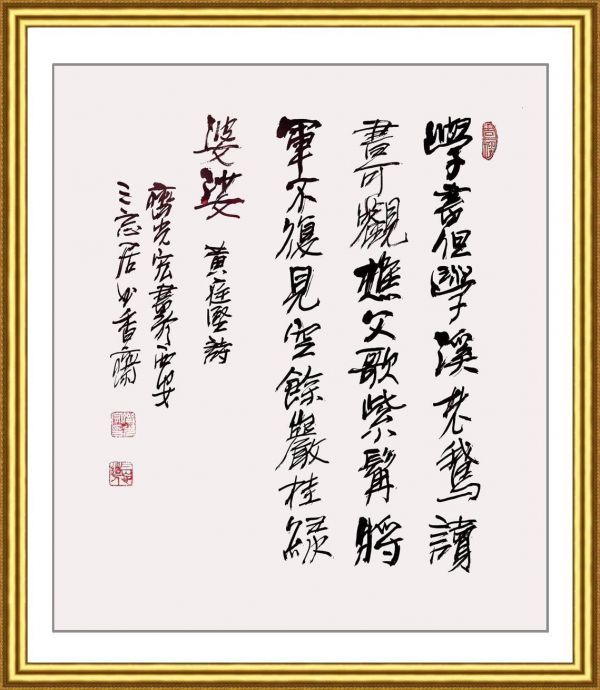 學書但學溪老鵝讀
書可觀樵父歌紫髯將
軍不復見空餘巖桂綠
婆娑
黃庭堅詩
齊光宏書於西安
三忘居小香齋